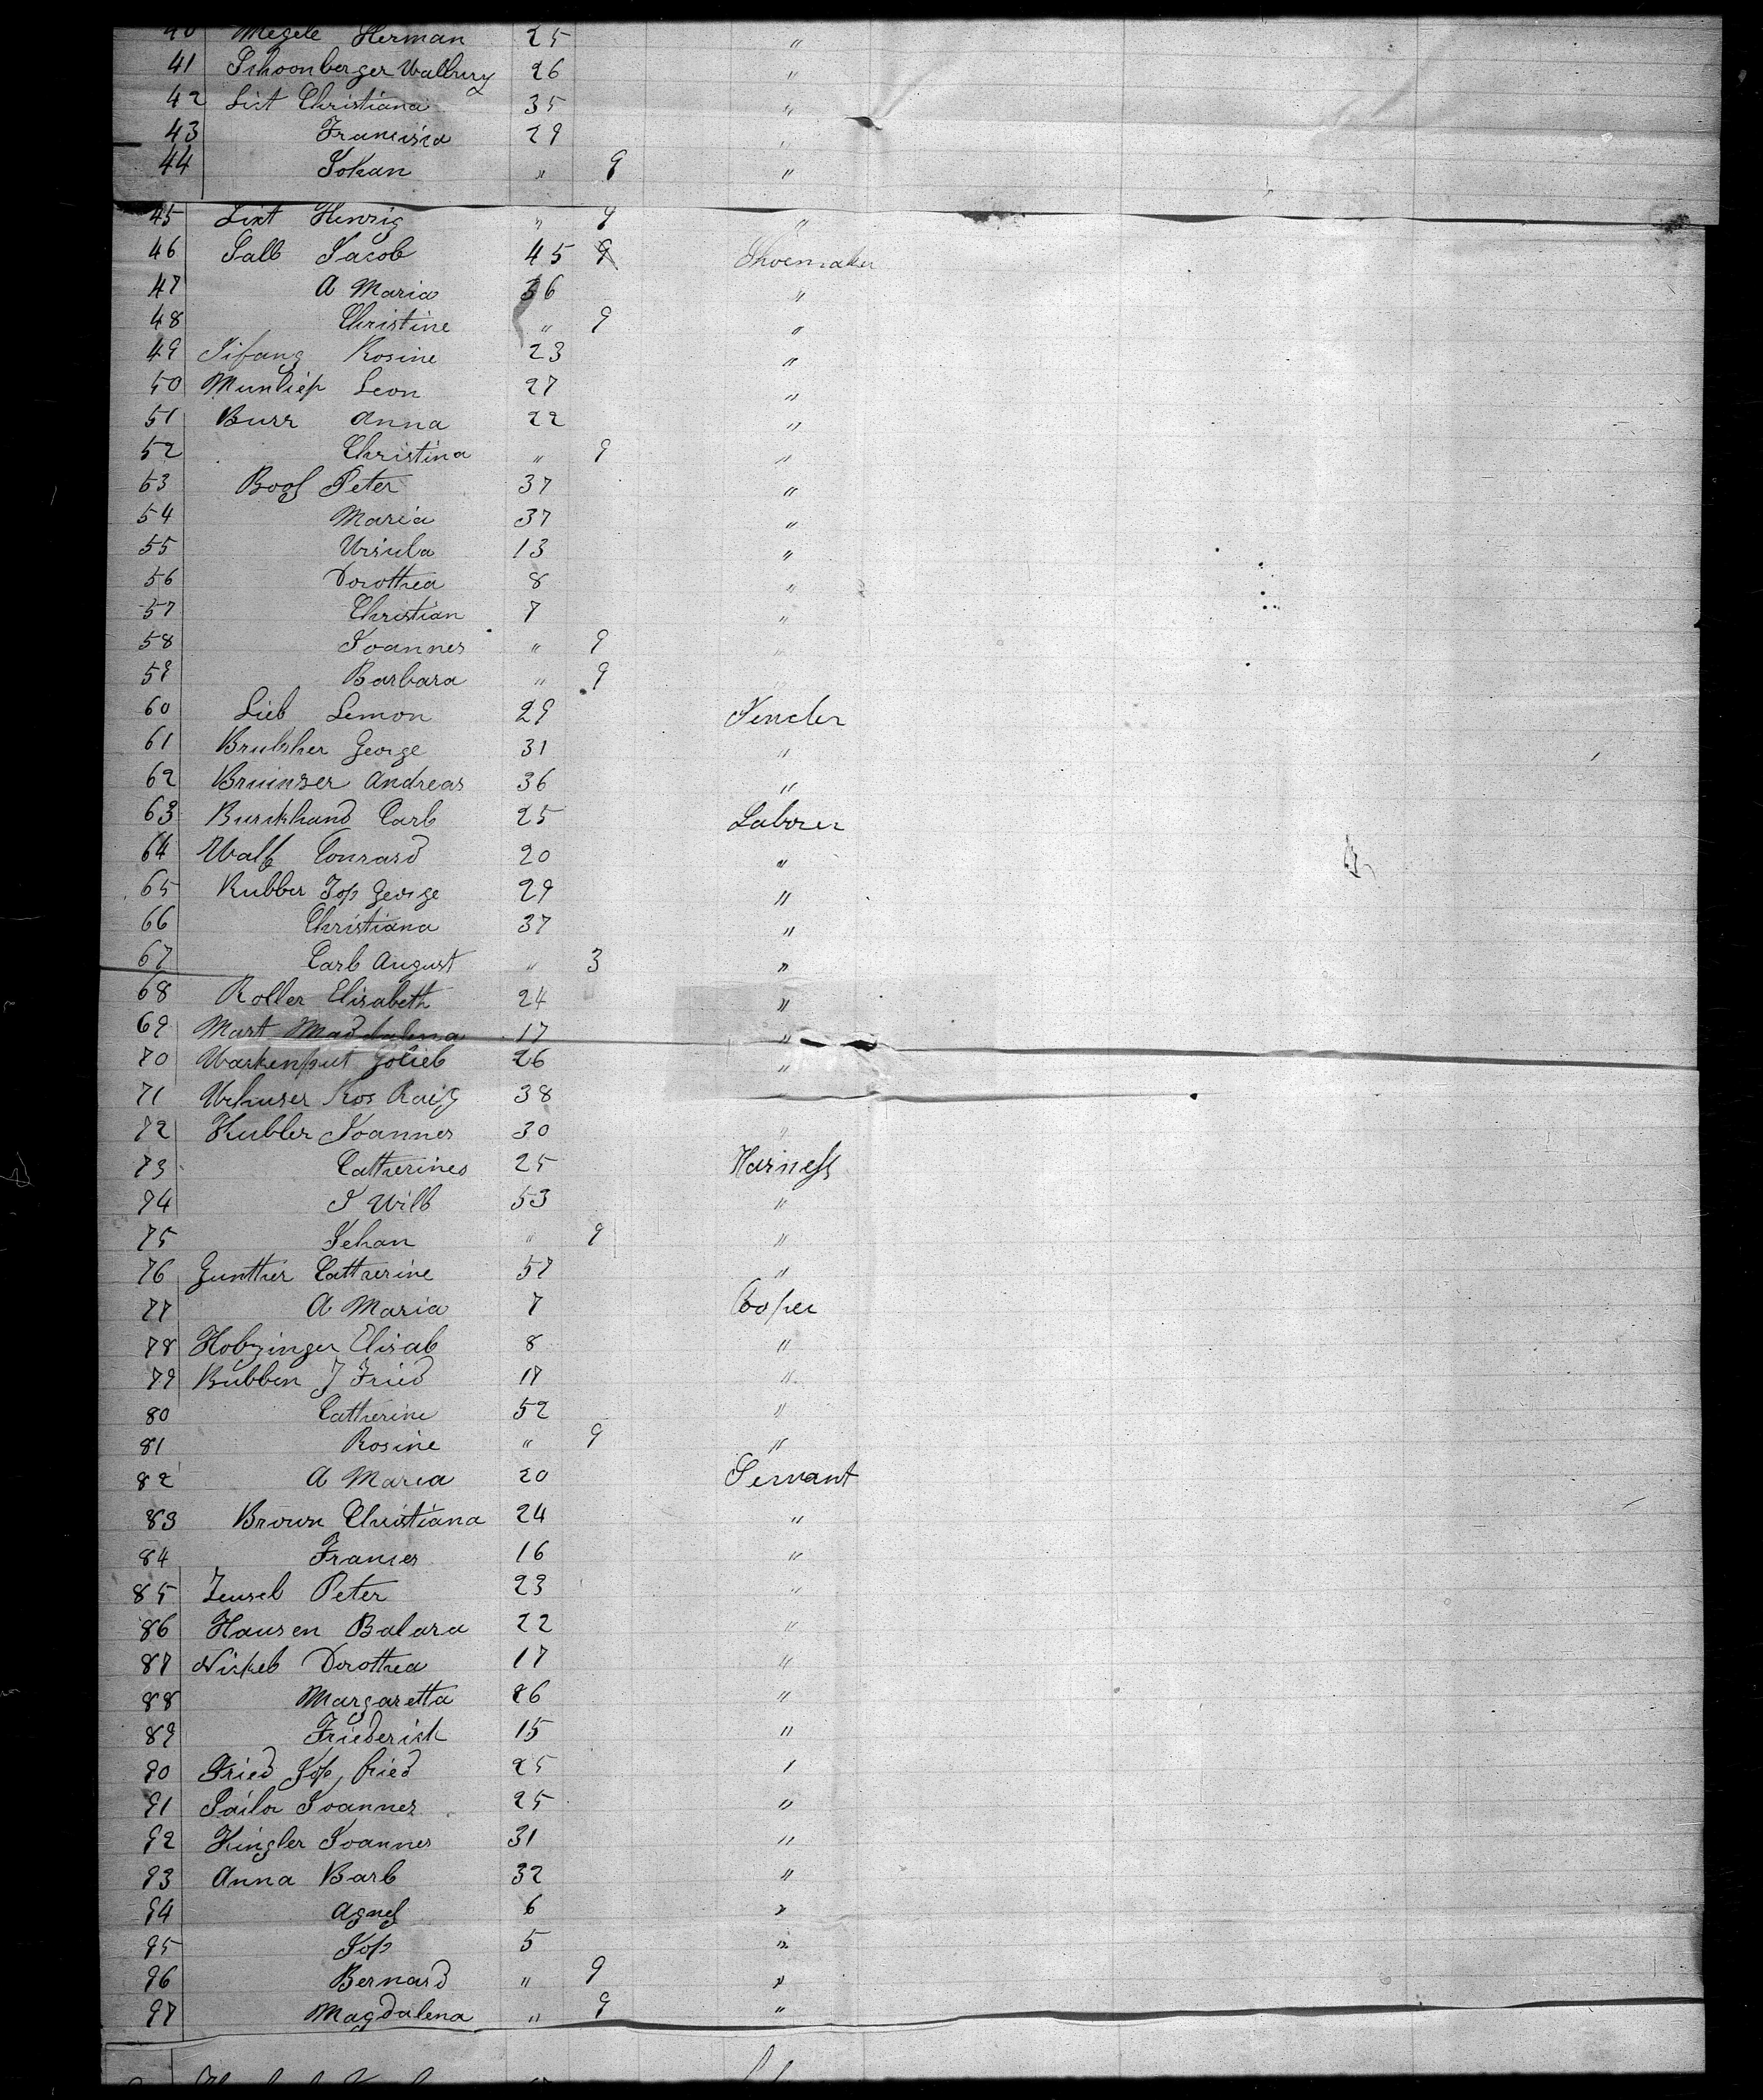 40 Megele Herman 25 "
41 Schoonberger Walbury 26 "
42 Lixt Christiana 35 "
43 Francisca 29 "
44 Johan " 9 "
45 Lixt Henrig " 9 "
46 Salb Jacob 45 9 Shoemaker
47 A Maria 36 "
48 Christine " 9 "
49 Sifang Rosine 23 "
50 Leon 27 "
51 Burr Anna 22 "
52 Christina " 9 "
53 Boos Peter 37 "
54 Maria 37 "
55 Ursula 13 "
56 Dorothea 8 "
57 Christian 7 "
58 Joannes " 9 "
59 Barbara " 9
60 Lieb Lemon 29
61 George 31 "
62 Andreas 36 "
63 Burckhand Carl 25 Laborer
64 Walb Conrard 20 "
65 Rubber Jop George 29 "
66 Christiana 37 "
67 Carl August " 3 "
68 Roller Elisabeth 24 "
69 Mart Maddalena 17 "
70 Warkenput Golieb 26 "
71 38
72 Kubler Joannes 30 "
73 Catherines 25 Harness
74 J Wilb 53 "
75 Jehan " 9 "
76 Gunther Catherine 57 "
77 A Maria 7 Cooper
78 Elisab 8 "
79 Bubben J Fried 17 "
80 Catherine 52 "
81 Rosine " 9 "
82 A Maria 20 Servant
83 Brown Christiana 24 "
84 Frances 16 "
85 Peter 23 "
86 Hausen Balara 22 "
87 Nickel Dorothea 17 "
88 Margaretta 26 "
89 Friederich 15 "
90 Fried Jop, fried 25 "
91 Sailor Joannes 25 "
92 Kingler Joannes 31 "
93 Anna Barb 32 "
94 Agnes 6 "
95 Jop 5 "
96 Bernard " 9 "
97 Magdalena " 9 "